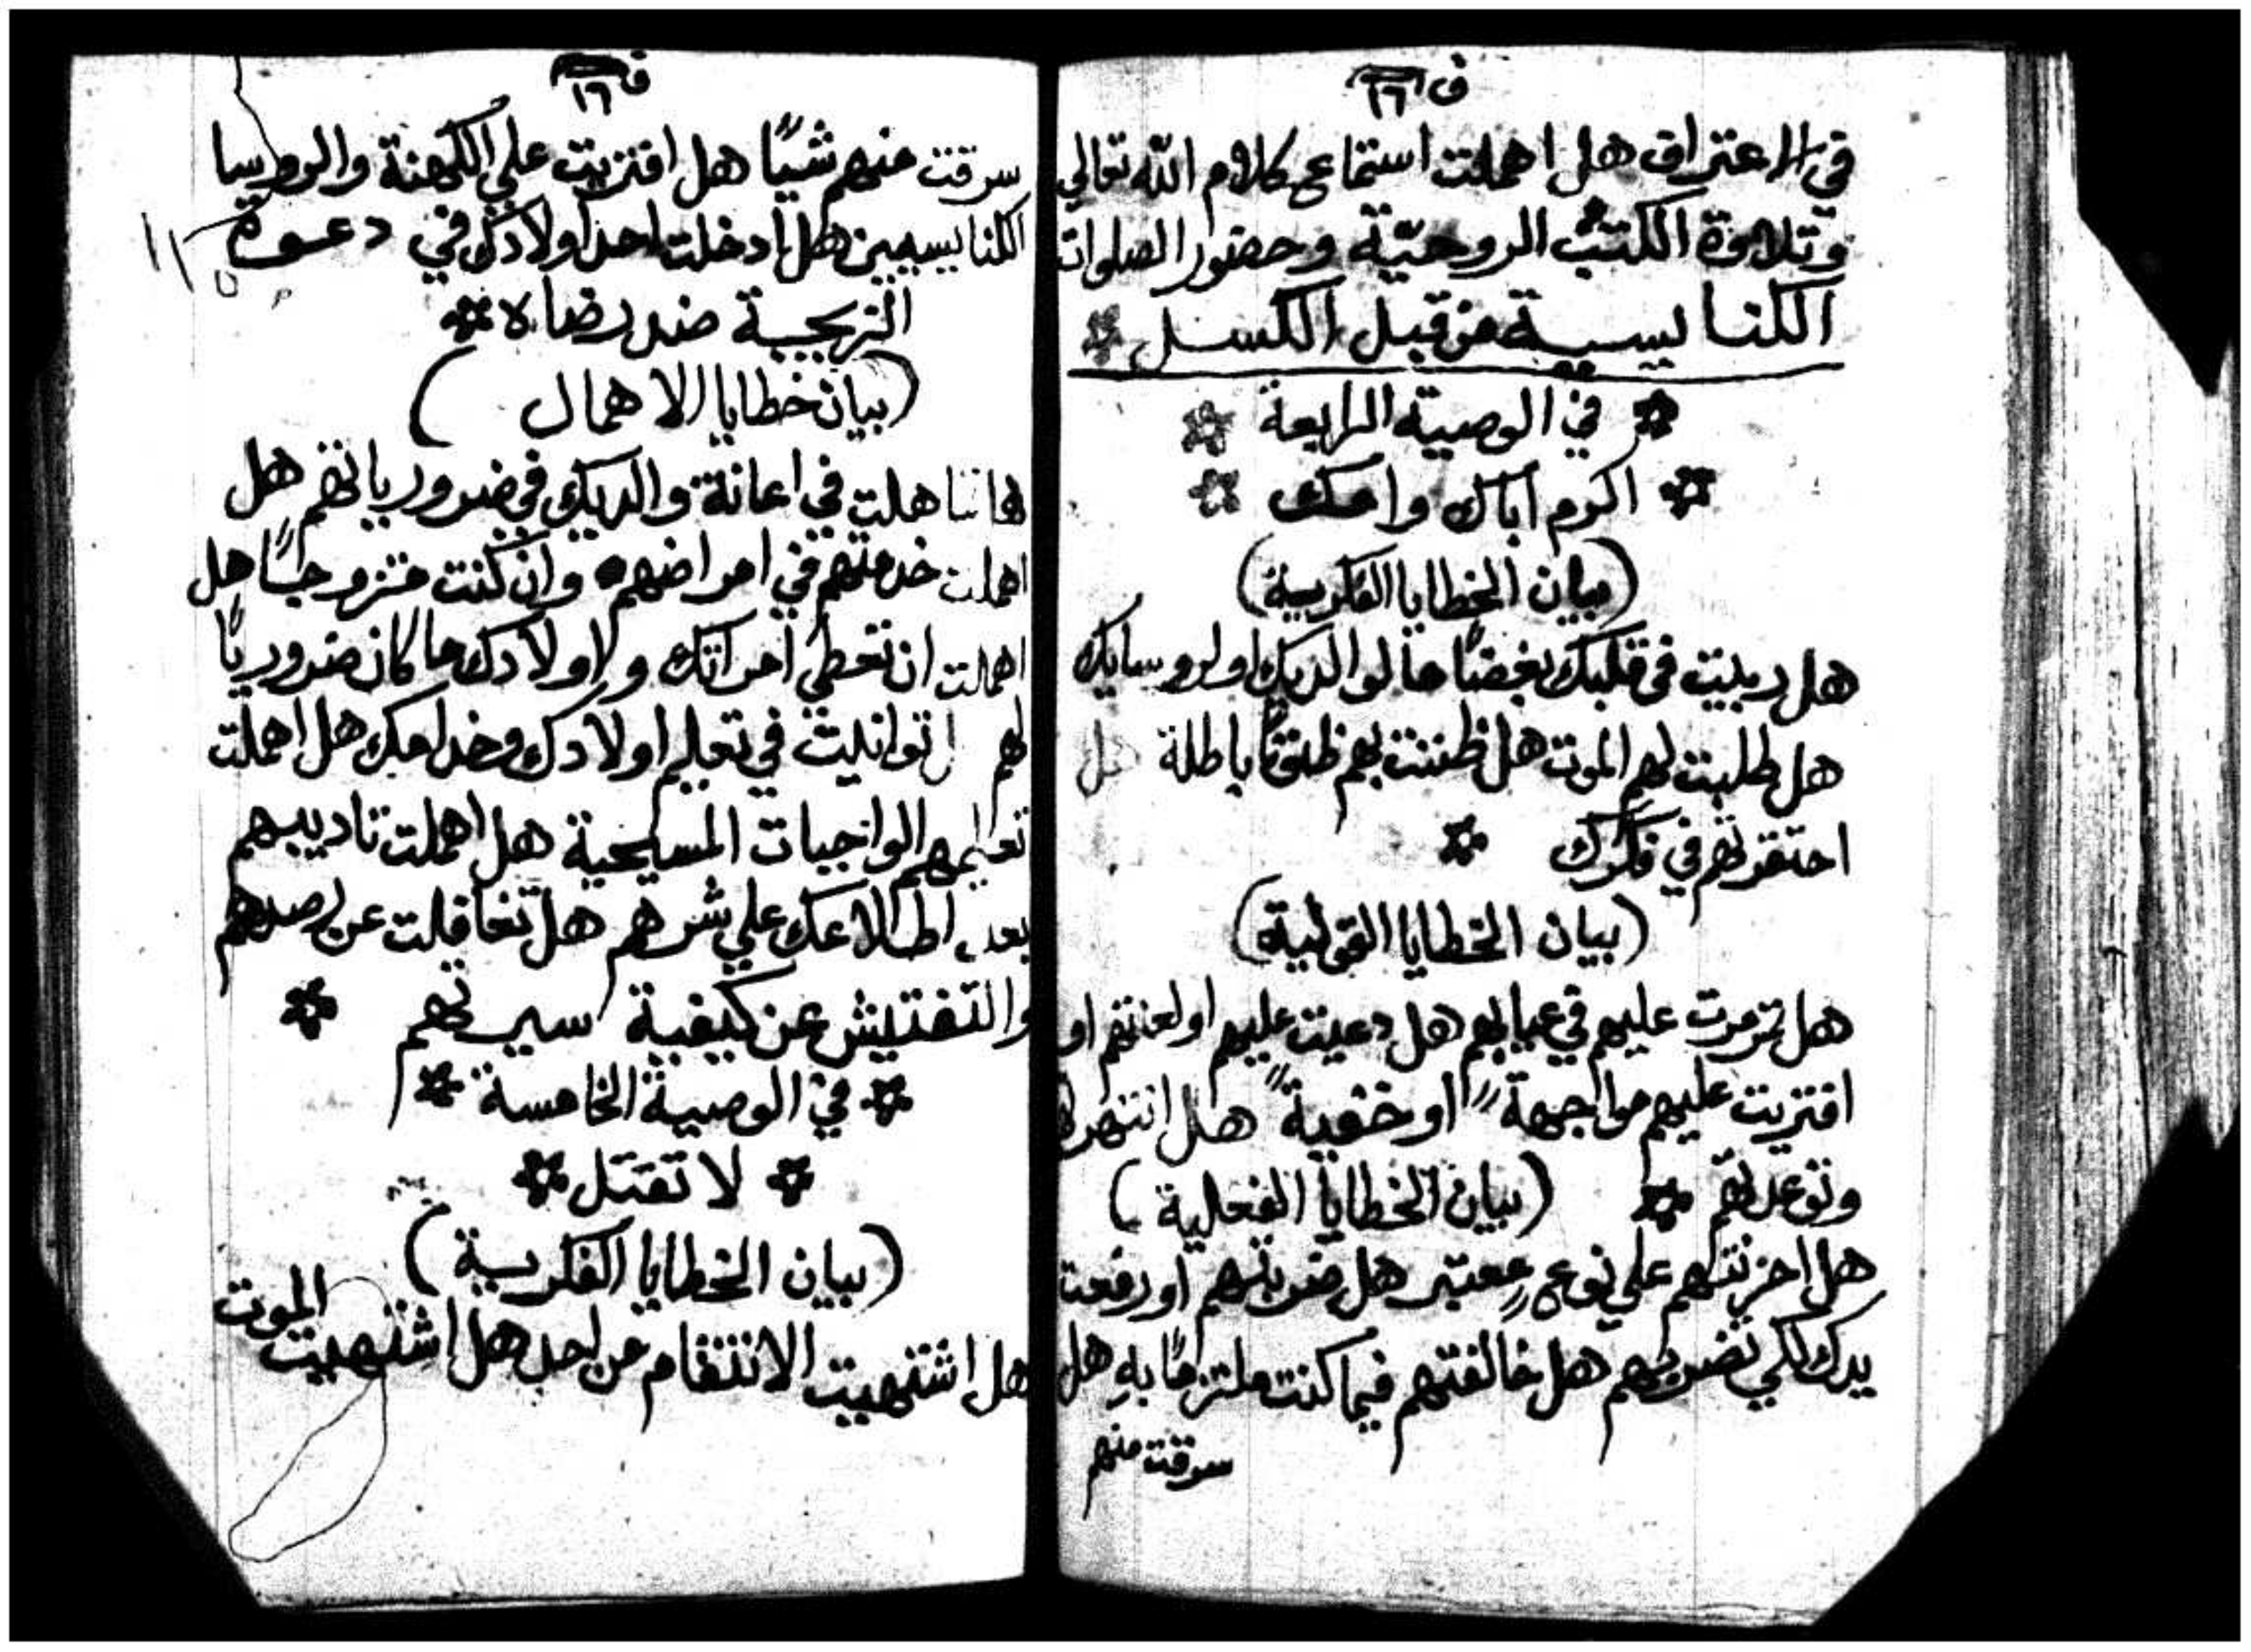 ف ١٦
في الاعتراف هل اهملت استماع كلام الله تعالي
وتلاوة الكتب الروحيّة وحضور الصلوات
الكنايسية من قبل الكسل
في الوصية الرابعة
اكرم اباك وامك
(بيان الخطايا الفكرية)
هل ربيت في قلبك بغضًا ما لوالديك او لروسايك
هل طلبت لهم الموت هل ظننت بهم ظنونًا باطلة هل
احتقرتهم في فكرك
(بيان الخطايا القولية)
هل تمرمرت عليهم في غيابهم هل دعيت عليهم او لعنتهم او
افتريت عليهم مواجهةً او خفيةً هل انتهرتهم
وتوعدتهم (بيان الخطايا الفعلية)
هل احزنتهم علي نوعٍ معتبر هل ضربتهم او رفعت
يدك لكي تضربهم هل خالفتهم فيما كنت ملتزمًا به هل
سرقت منهم
ف ١٦
سرقت منهم شيًا هل افتريت علي الكهنة والروسا
الكنايسيين هل ادخلت احد اولادك في دعوة
الزيجية ضد رضاه
(بيان خطايا الاهمال)
هل تساهلت في اعانة والديك في ضرورياتهم هل
اهملت خدمتهم في امراضهم وان كنت متزوجًا هل
اهملت ان تعطي امراتك ولاولادك ما كان ضروريًا
لهم توانيت في تعليم اولادك وخدامك هل اهملت
تعليمهم الواجبات المسيحية هل اهملت تاديبهم
بعد اطلاعك علي شرهم هل تغافلت عن رصدهم
والتفتيش عن كيفية سيرتهم
في الوصية الخامسة
لا تقتل
(بيان الخطايا الفكرية)
هل اشتهيت الانتقام من احد هل اشتهيت الموت